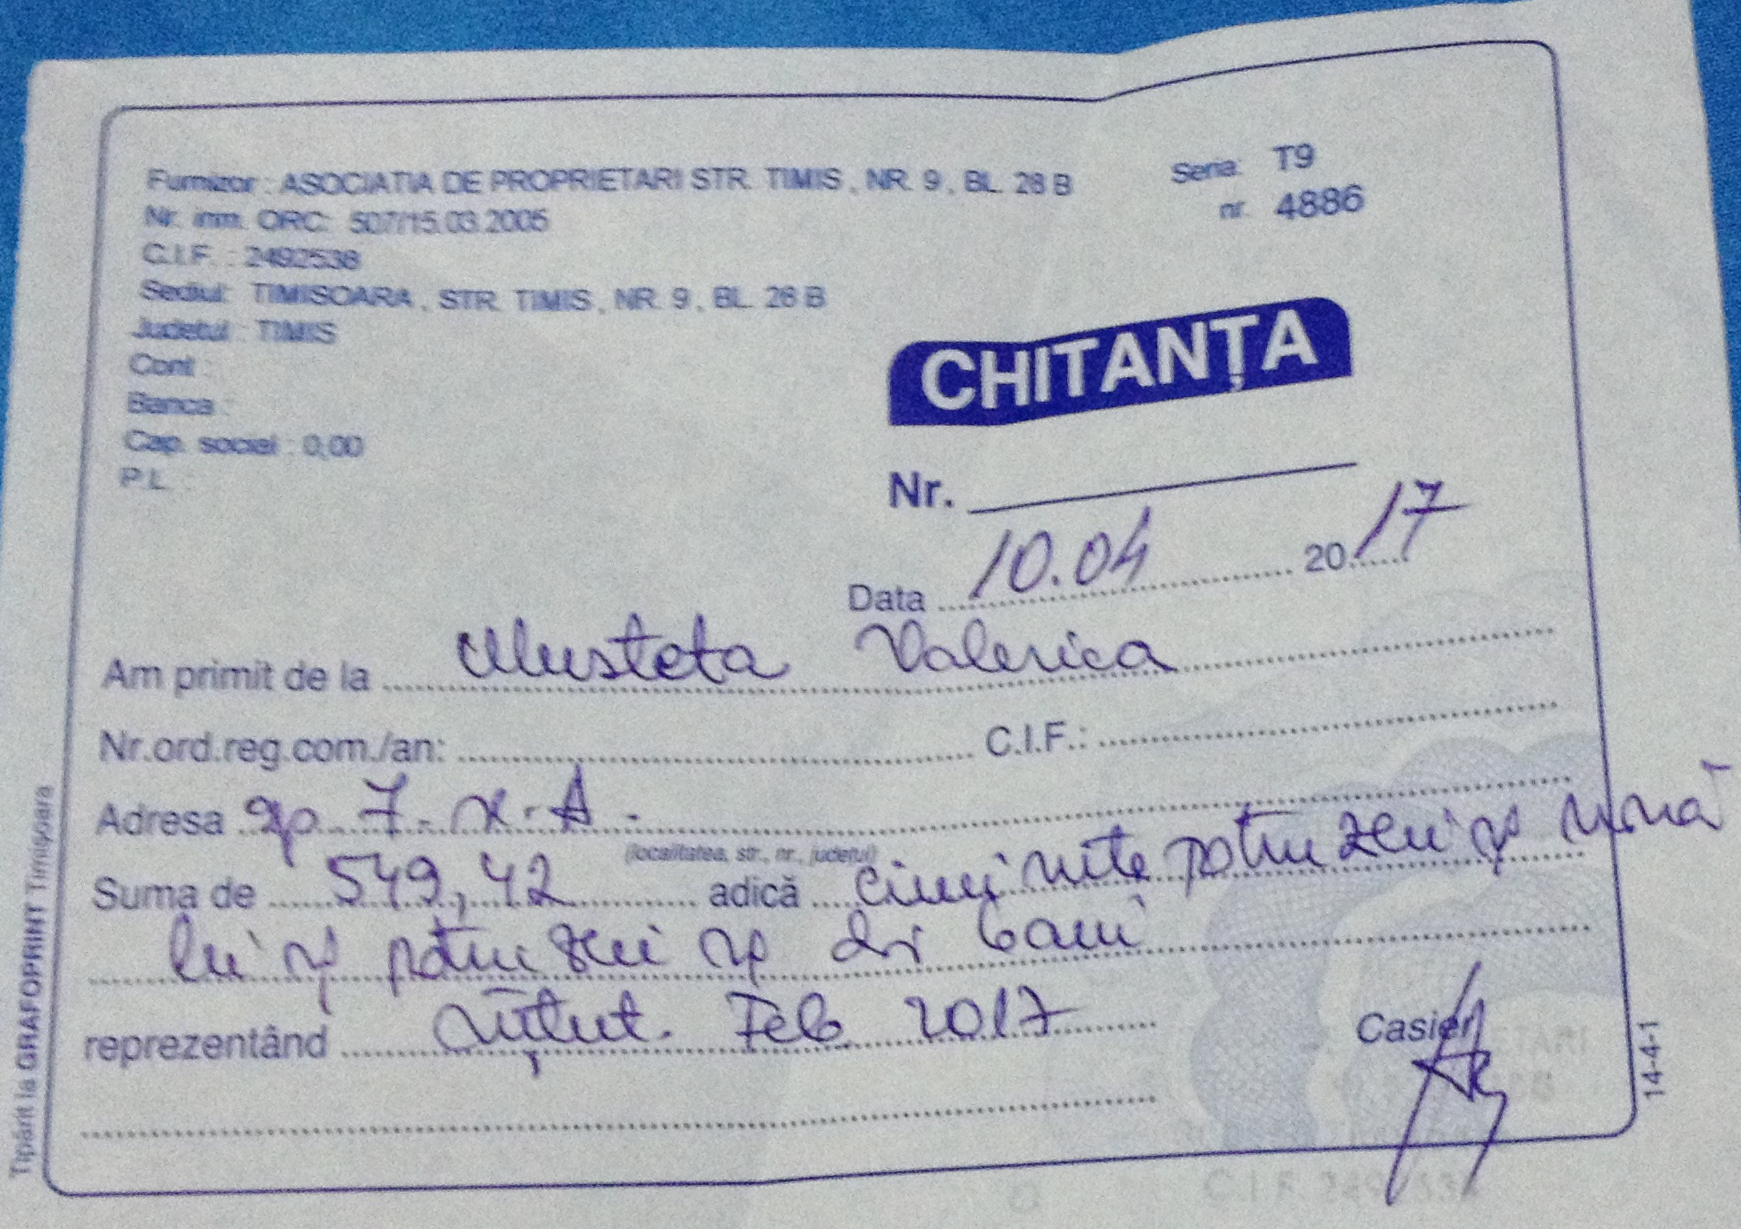 Furnizor : ASOCIATIA DE PROPRIETARI STR. TIMIS , NR. 9 , BL. 26 B
Seria: T9
nr. 4886
Nr. inm. ORC: 507/15.03.2005
C.I.F. : 2492538
Sediul: TIMISOARA , STR. TIMIS , NR. 9 , BL. 26 B
Judetul : TIMIS
Cont :
Banca :
Cap. social : 0,00
P.L. :
CHITANȚA
Nr.
Data 10.04 2017
Am primit de la Musteta Valerica
Nr.ord.reg.com./an: C.I.F.:
Adresa ap 7. X. A.
(localitatea, str., nr., județul)
Suma de 549,42 adică cinci sute patru zeci și nouă
lei și patru zeci și doi bani
reprezentând Feb. 2017
Casier
Tipărit la GRAFOPRINT Timișoara
14-4-1